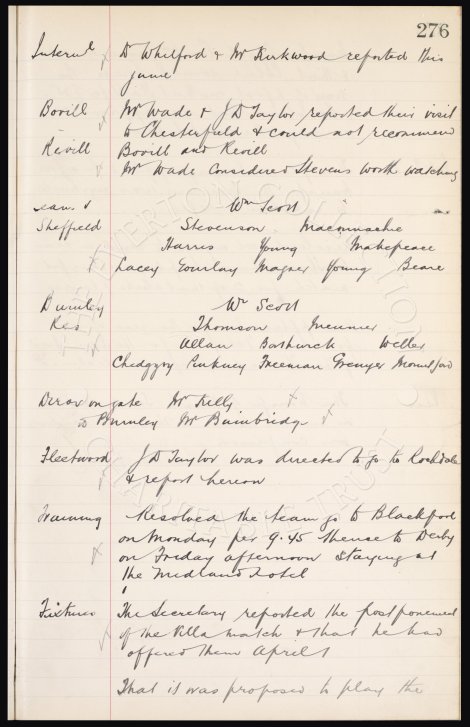 276
Internl Dr Whitford & Mr Kirkwood reported this
game
Bovill Mr Wade & J D Taylor reported their visit
to Chesterfield & could not recommend
Revill Bovill and Revill
Mr Wade considered Stevens worth watching
Team v Wm Scott
Sheffield Stevenson Maconnachie
Harris Young Makepeace
Lacey Gourlay Magner Young Beare
Burnley Wm Scott
Res Thomson Meunier
Allan Borthwick Weller
Chedgzoy Pinkney Freeman Grenyer Mountford
Director on gate Mr Kelly
to Burnley Mr Bainbridge
Fleetwood J D Taylor was directed to go to Rochdale
& report hereon
Training Resolved the team go to Blackpool
on Monday per 9.45 thence to Derby
on Friday afternoon staying at
the Midland Hotel
Fixtures The Secretary reported the postponement
of the Villa match & that he had
offered them April 1
That it was proposed to play the
THE EVERTON COLLECTION
CHARITABLE TRUST